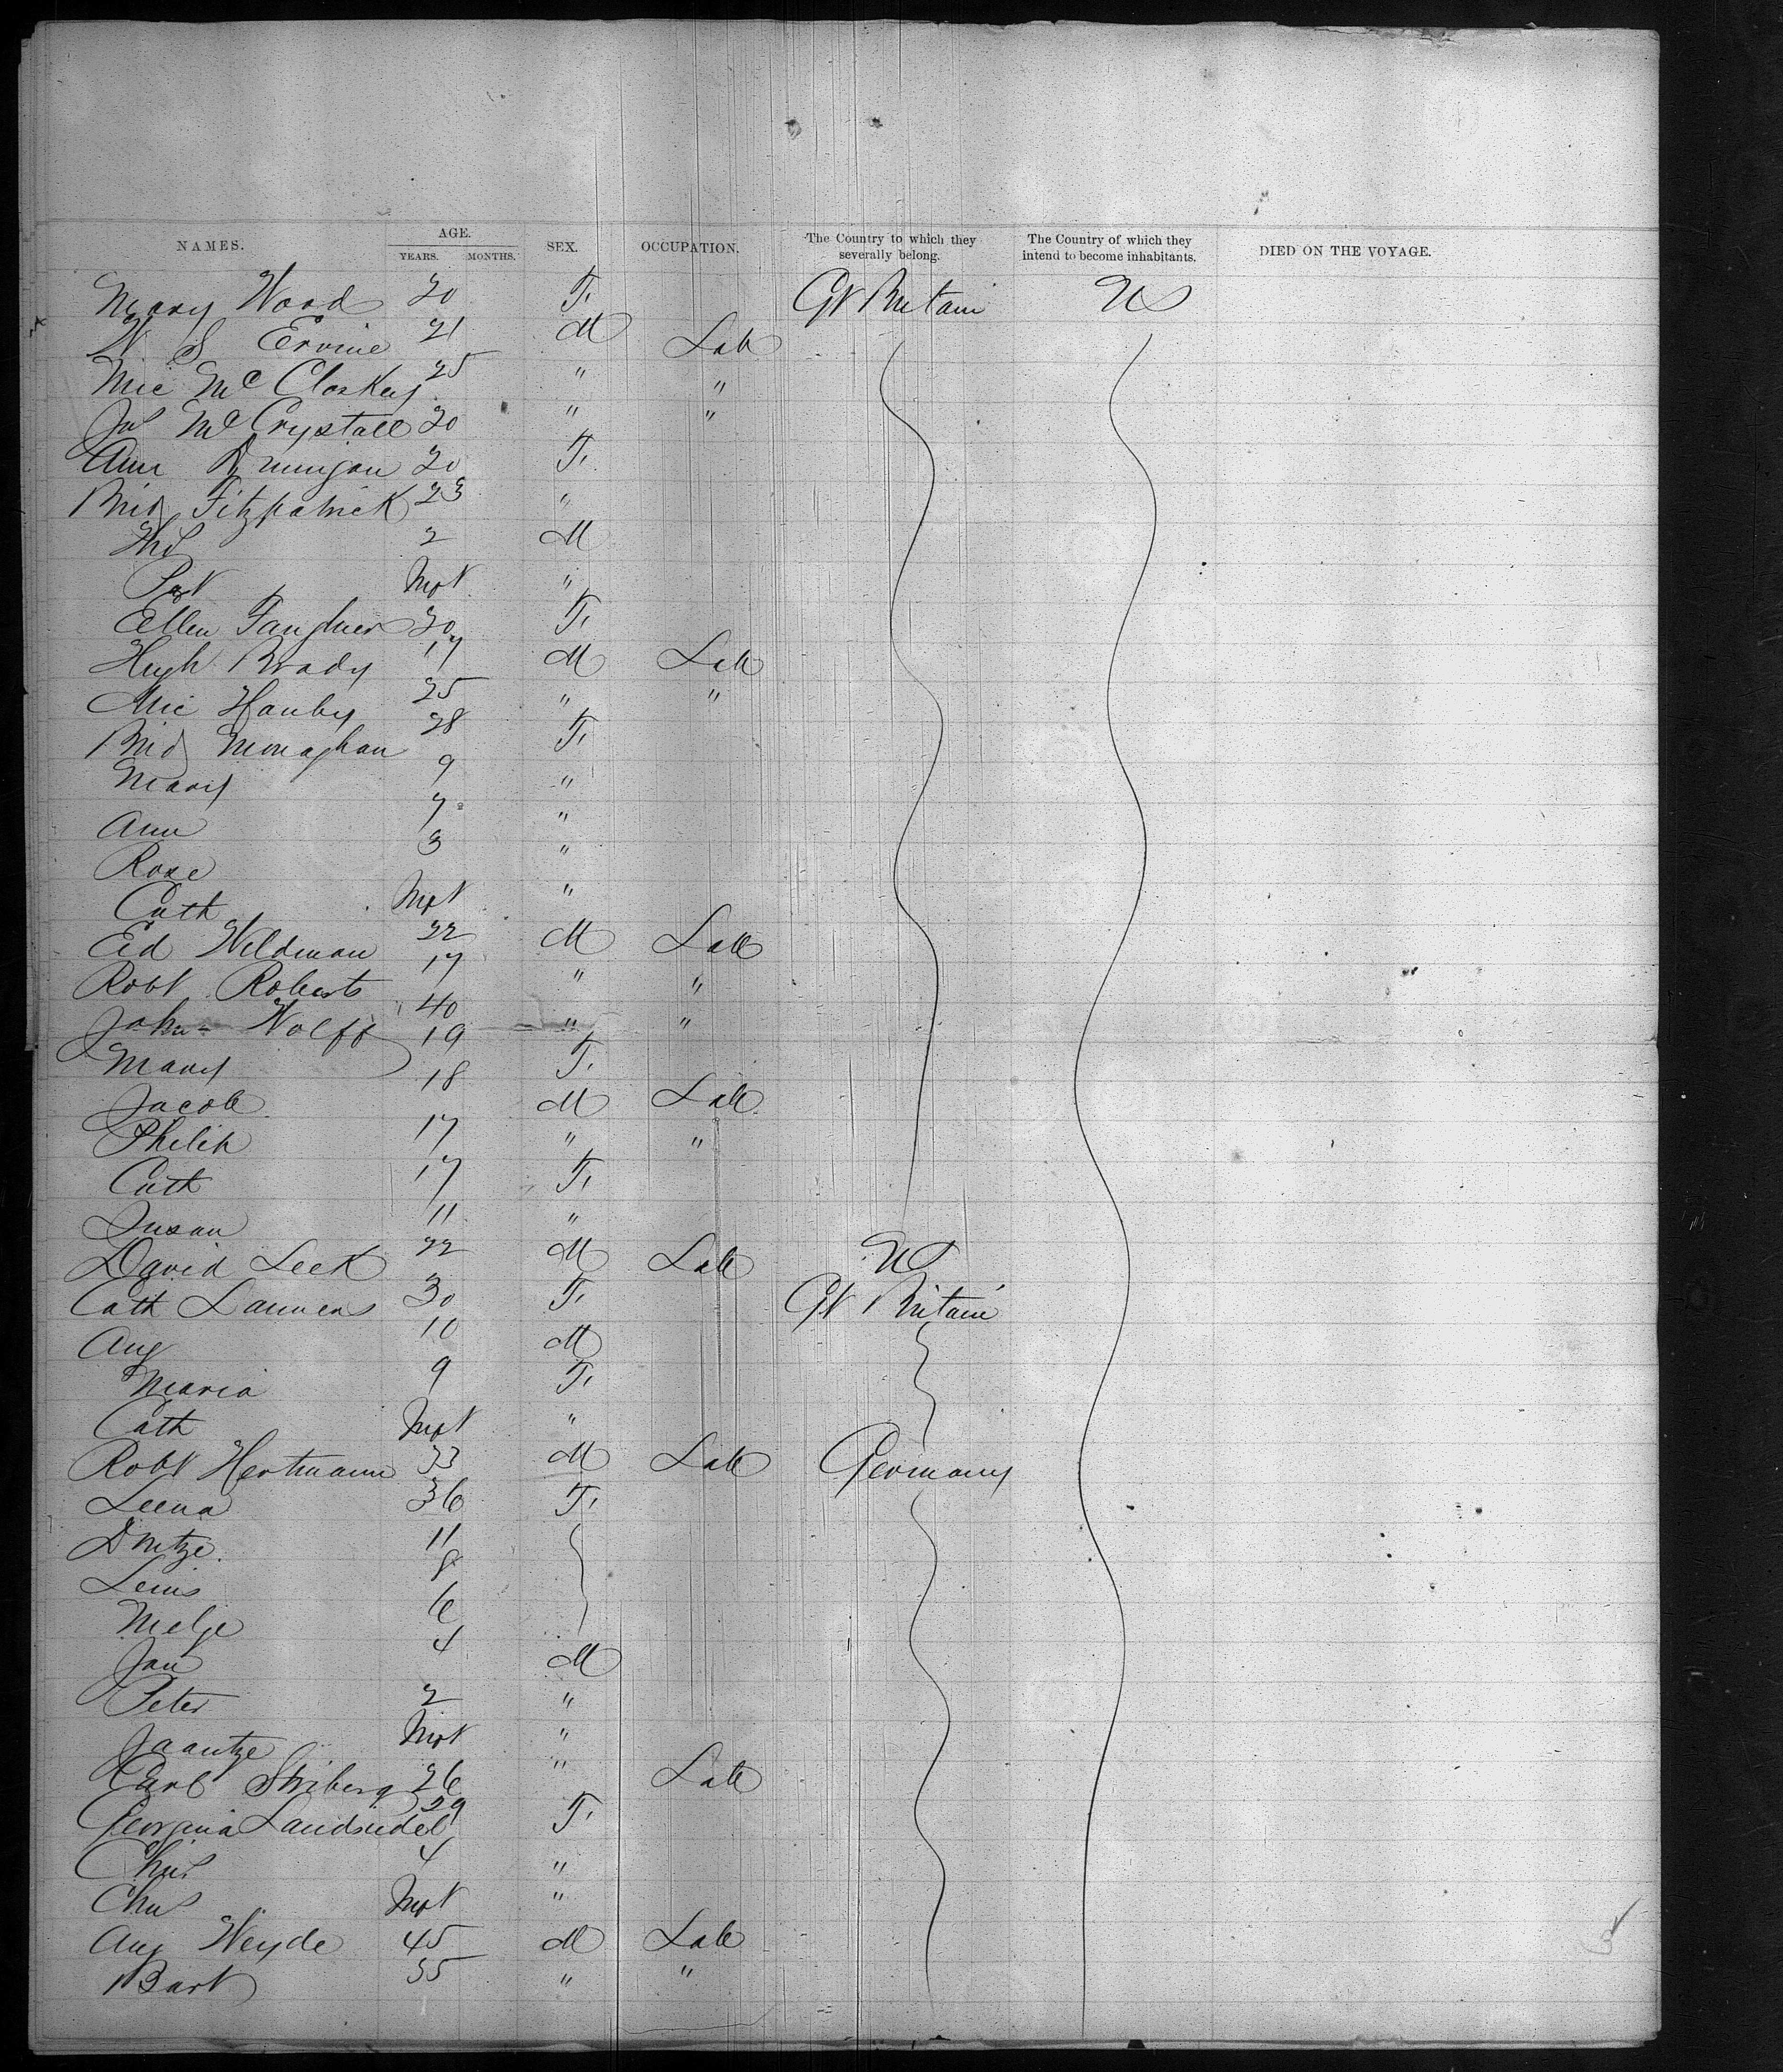 NAMES. AGE. YEARS. MONTHS. SEX. OCCUPATION. The Country to which they severally belong. The Country of which they intend to become inhabitants. DIED ON THE VOYAGE.
Mary Wood 20 F. Gt Britain US
W. S Ervine 21 M Lab
Mic Mc Closkey 25 " "
Jas Mc Crystall 20 " "
Ann 20 F.
Brid Fitzpatrick 23 "
Thos 2 M
Pat Inft "
Ellen 20 F.
Hugh Brady 17 M Lab
Mic Hanby 25 " "
Brid Monaghan 28 F.
Mary 9 "
Ann 7 "
Rose 3 "
Cath Inft "
Ed Wildman 22 M Lab
Robt Roberts 17 " "
John Wolff 40 " "
Mary 19 F.
Jacob 18 M Lab
Philip 17 " "
Cath 17 F.
Susan 11 "
David Leek 22 M Lab US
Cath Lauwens 30 F. Gt Britain
Aug 10 M
Maria 9 F.
Cath Inft "
Robt Hertmann 33 M Lab Germany
Leena 36 F.
11
8
6
Jan 4 M
Peter 2 "
Jaantze Inft "
Carl Striberg 26 " Lab
Georgina Landsiedel 29 F.
4 "
Inft "
Aug Weyde 45 M Lab
Bart 35 " "